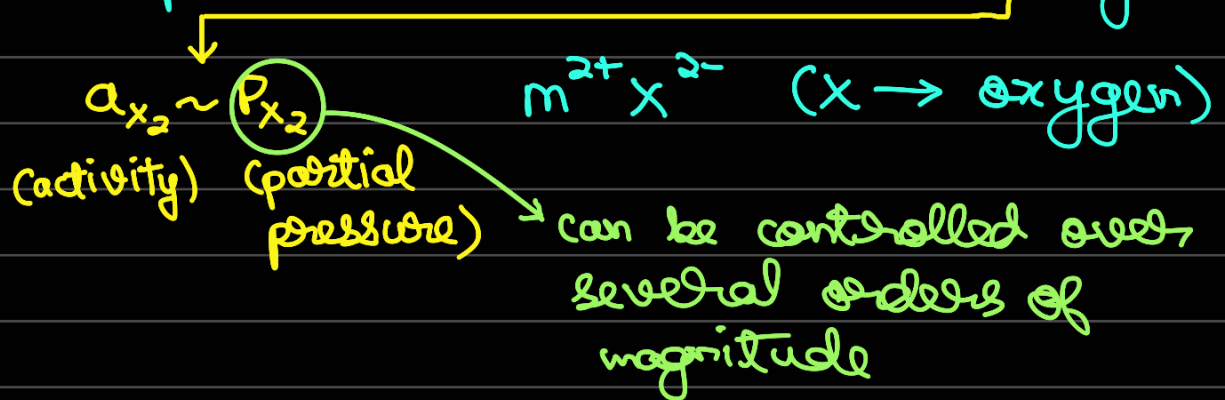 a_{x_2} ~ P_{x_2} m^{2+} X^{2-} (X → oxygen)
(activity) (partial
pressure) can be controlled over
several orders of
magnitude